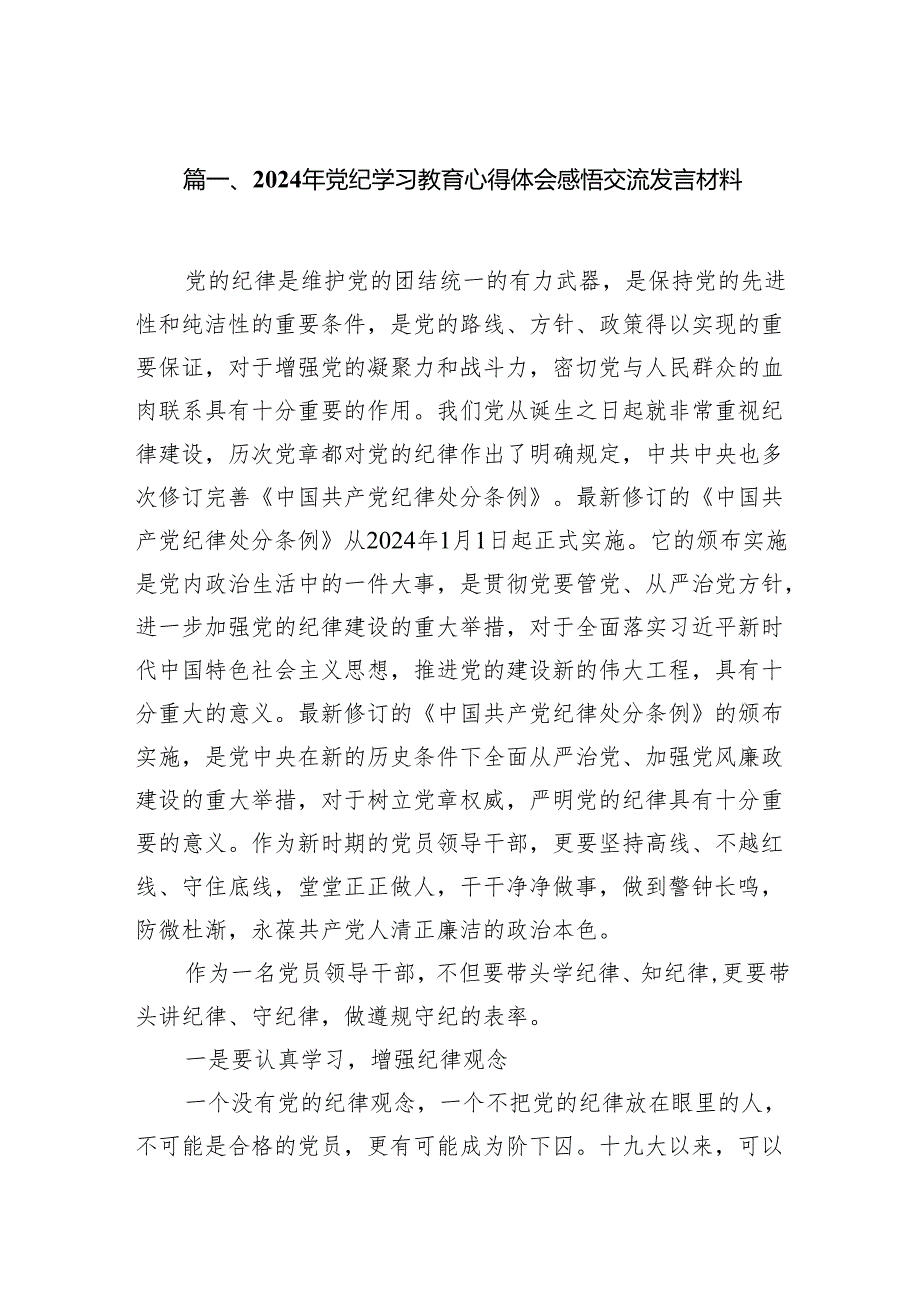 篇一、2024年党纪学习教育心得体会感悟交流发言材料
党的纪律是维护党的团结统一的有力武器，是保持党的先进
性和纯洁性的重要条件，是党的路线、方针、政策得以实现的重
要保证，对于增强党的凝聚力和战斗力，密切党与人民群众的血
肉联系具有十分重要的作用。我们党从诞生之日起就非常重视纪
律建设，历次党章都对党的纪律作出了明确规定，中共中央也多
次修订完善《中国共产党纪律处分条例》。最新修订的《中国共
产党纪律处分条例》从2024年1月1日起正式实施。它的颁布实施
是党内政治生活中的一件大事，是贯彻党要管党、从严治党方针，
进一步加强党的纪律建设的重大举措，对于全面落实习近平新时
代中国特色社会主义思想，推进党的建设新的伟大工程，具有十
分重大的意义。最新修订的《中国共产党纪律处分条例》的颁布
实施，是党中央在新的历史条件下全面从严治党、加强党风廉政
建设的重大举措，对于树立党章权威，严明党的纪律具有十分重
要的意义。作为新时期的党员领导干部，更要坚持高线、不越红
线、守住底线，堂堂正正做人，干干净净做事，做到警钟长鸣，
防微杜渐，永葆共产党人清正廉洁的政治本色。
作为一名党员领导干部，不但要带头学纪律、知纪律,更要带
头讲纪律、守纪律，做遵规守纪的表率。
一是要认真学习，增强纪律观念
一个没有党的纪律观念，一个不把党的纪律放在眼里的人，
不可能是合格的党员，更有可能成为阶下囚。十九大以来，可以